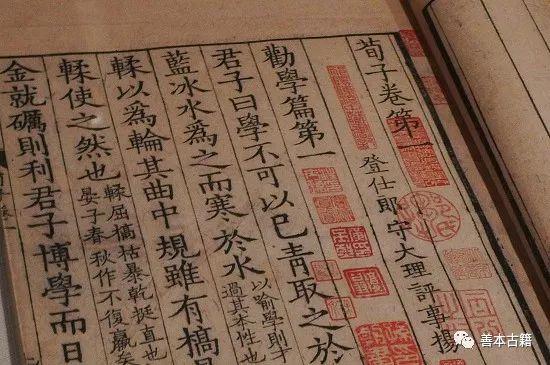 荀子卷第一
登仕郎守大理評事楊
勸學篇第一
君子曰學不可以已青取之於
藍冰水爲之而寒於水
以喻學則才
過其本性也
輮以爲輪其曲中規雖有槁
輮使之然也
輮屈槁枯暴乾挺直也
晏子春秋作不復贏矣
金就礪則利君子博學而日
善本古籍